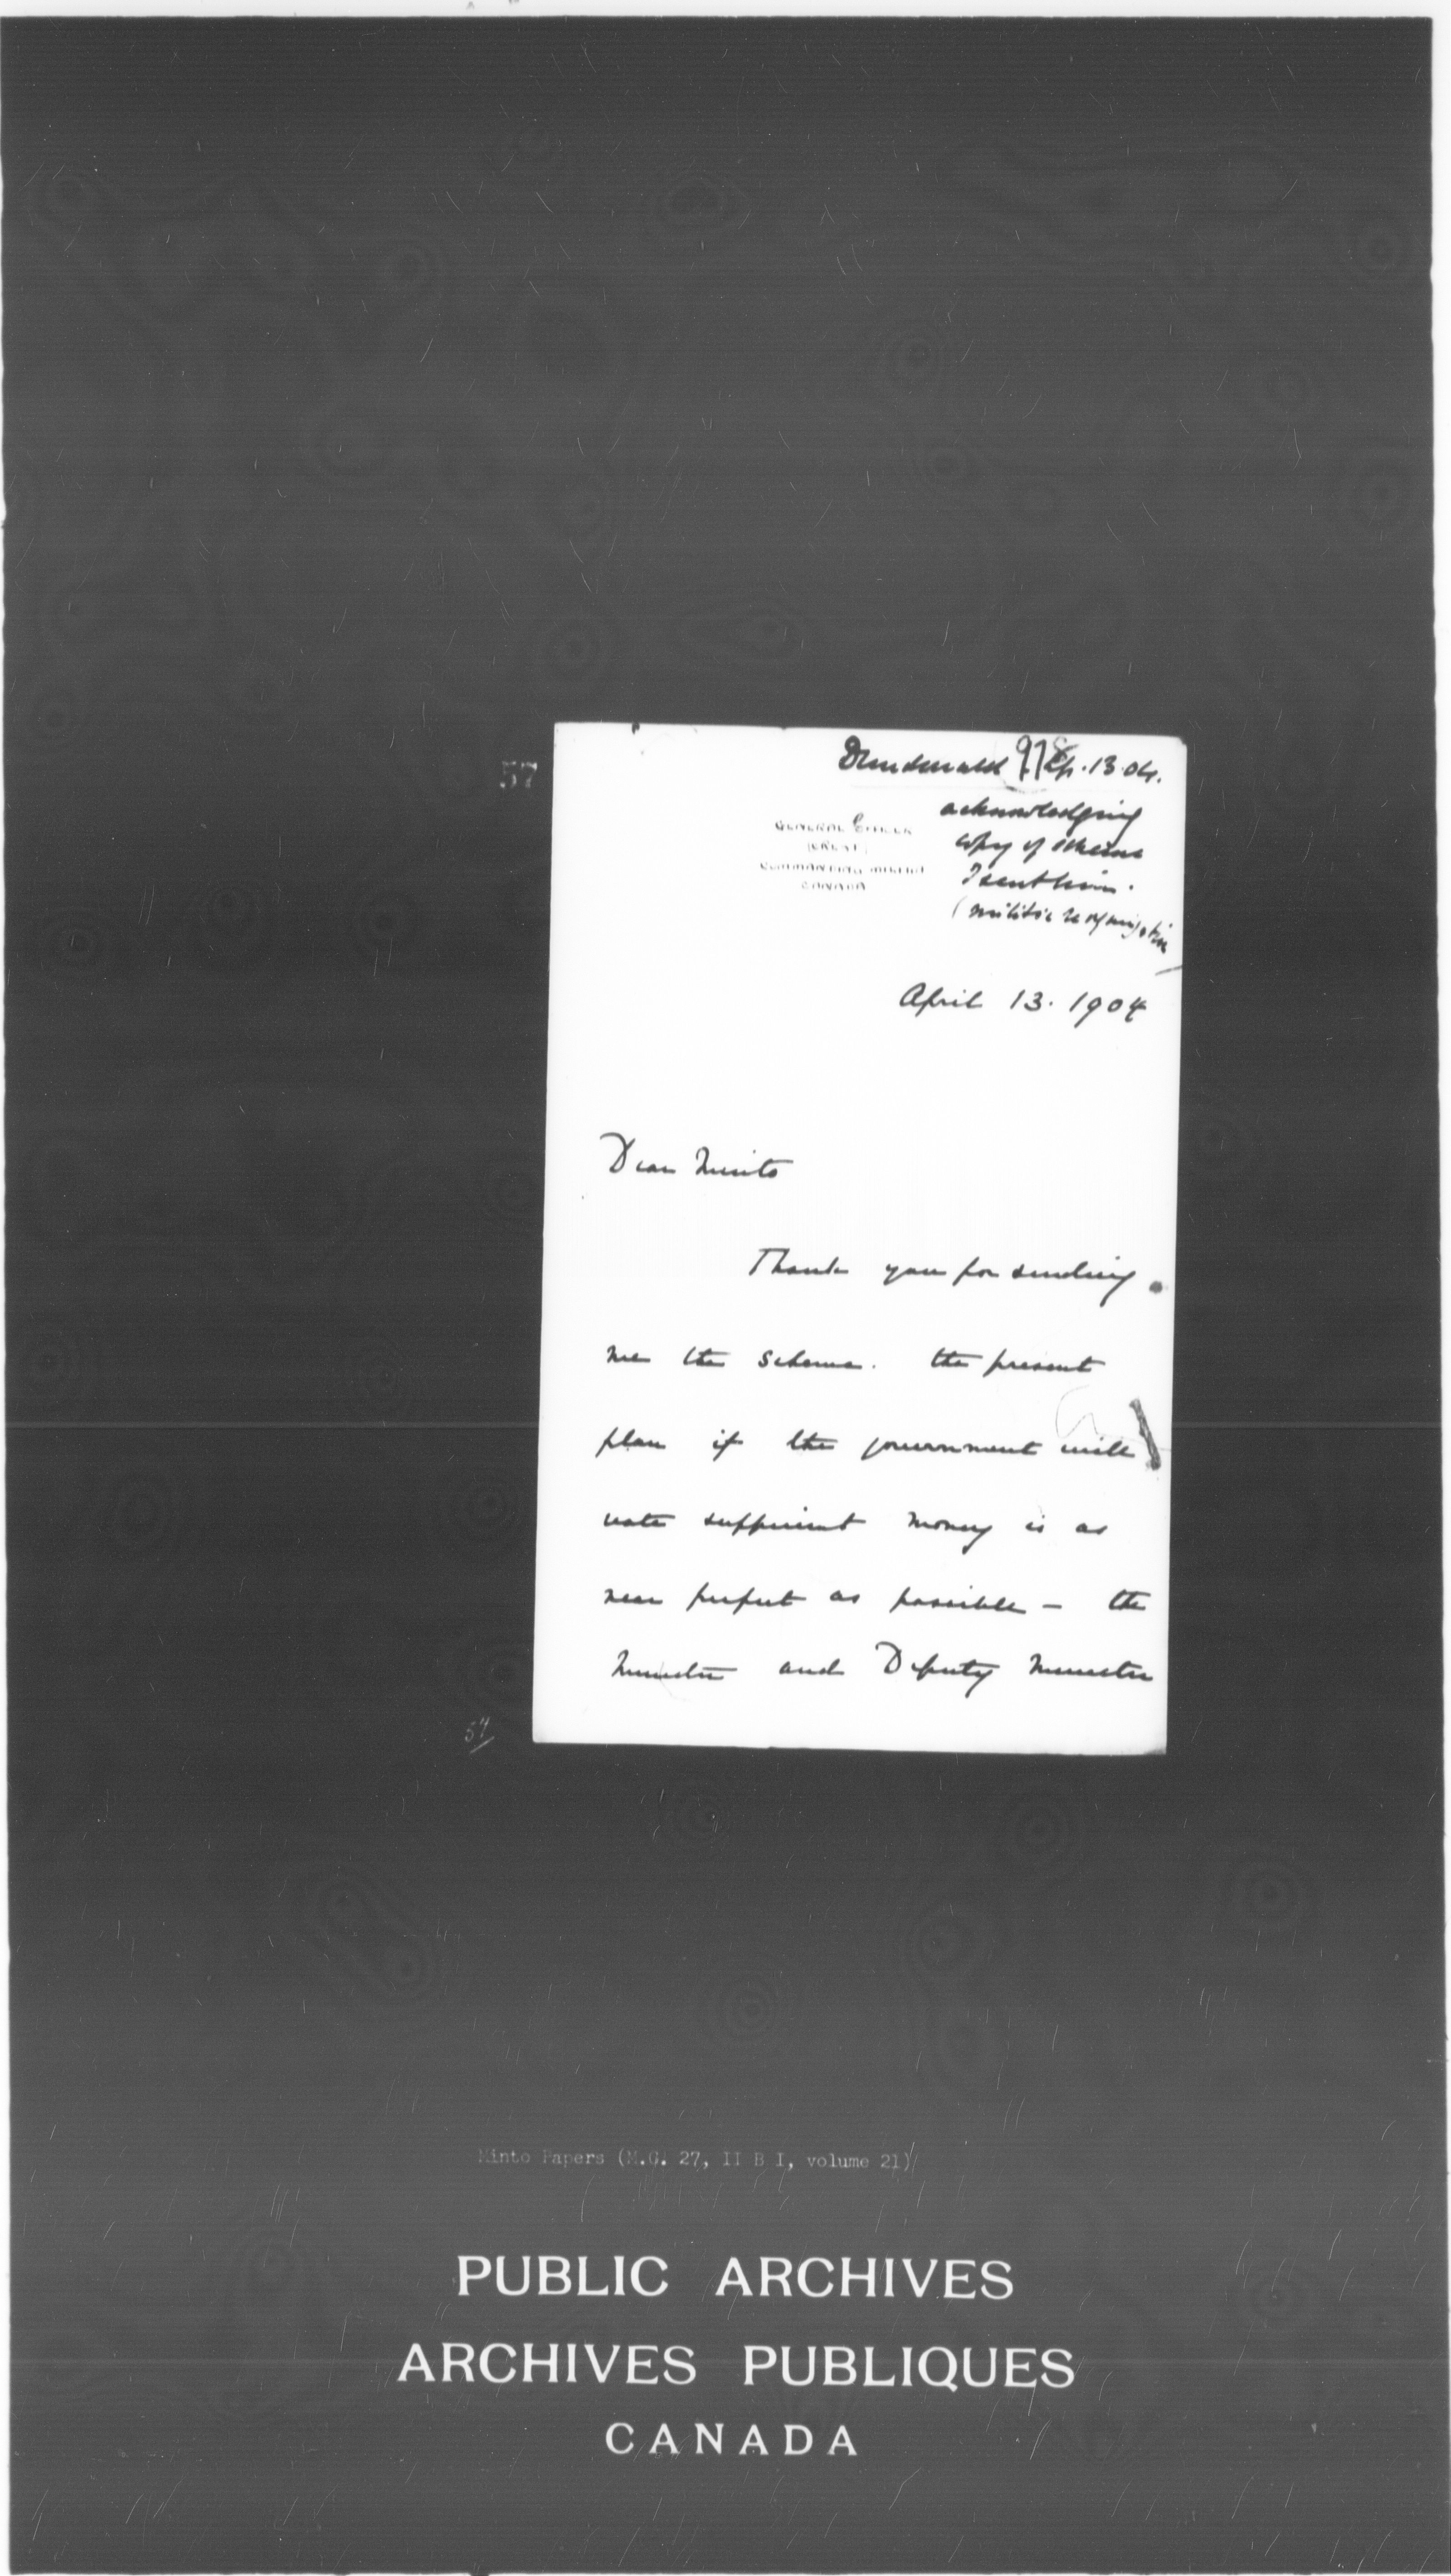 57
Dundonald Ap. 13. 04.
978
acknowledging
copy of scheme
I sent him.
(militia reorganization
GENERAL OFFICER
(CREST)
COMMANDING MILITIA
CANADA
April 13. 1904
Dear Minto
Thank you for sending
me the scheme. the present
plan if the government will
vote sufficient money is as
near perfect as possible – the
Minister and Deputy Minister
57
Minto Papers (M.G. 27, II B I, volume 21)
PUBLIC ARCHIVES
ARCHIVES PUBLIQUES
CANADA